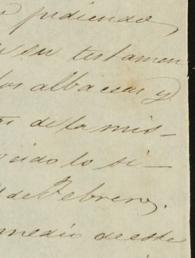 pidiendo,
en su testamen
los albaceas y
de la mis-
lo si-
de Febrero.
medio de este